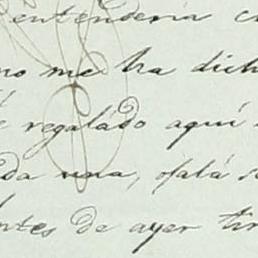 entenderia
no me ha dich
regalado aquí
da una, ojalá s
ntes de ayer